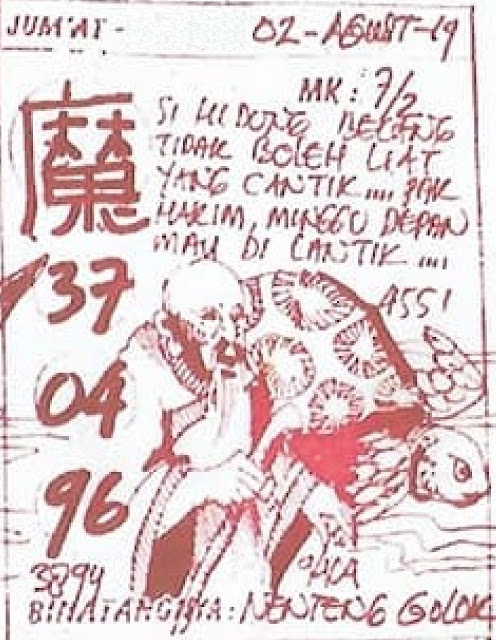 JUM'AT -
02 - AGUST - 19
MK : 7/2
SI HIDUNG BELANG
TIDAK BOLEH LIAT
YANG CANTIK .... PAK
HAKIM, MINGGU DEPAN
MAU DI CANTIK ....
魔
37
ASSI
04
96
3894
BINATANGNYA : NENTENG GOLOK